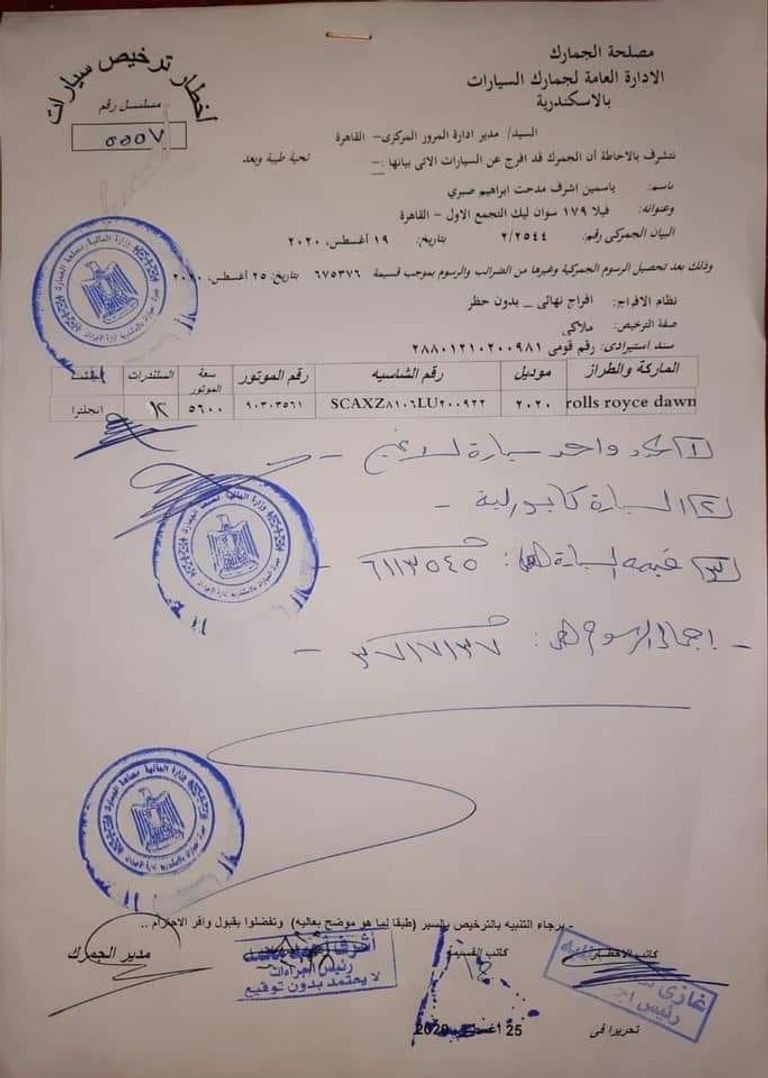 مصلحة الجمارك
الادارة العامة لجمارك السيارات
بالاسكندرية
اخطار ترخيص سيارات
مسلسل رقم
السيد/ مدير ادارة المرور المركزى- القاهرة
تحية طيبة وبعد
نتشرف بالاحاطة أن الجمرك قد افرج عن السيارات الاتى بيانها :-
باسم: ياسمين اشرف مدحت ابراهيم صبري
وعنوانه: فيلا ١٧٩ سوان ليك التجمع الاول - القاهرة
البيان الجمركى رقم: ٢/٢٥٤٤ بتاريخ: ١٩ أغسطس، ٢٠٢٠
وذلك بعد تحصيل الرسوم الجمركية وغيرها من الضرائب والرسوم بموجب قسيمة ٦٧٥٣٧٦ بتاريخ: ٢٥ أغسطس، ٢٠٢٠
نظام الافراج: افراج نهائى _ بدون حظر
صفة الترخيص: ملاكي
سند استيرادى: رقم قومى ٢٨٨٠١٢١٠٢٠٠٩٨١
الماركة والطراز موديل رقم الشاسيه رقم الموتور سعة الموتور السلندرات
rolls royce dawn ٢٠٢٠ SCAXZ٨١٠٦LU٢٠٠٩٢٢ ٩٠٣٠٣٥٦١ ٥٦٠٠ ١٢ انجلترا
١ عدد واحد سيارة لا غير -
٢ السيارة كابورليه -
٣ قيمه السيارة : ٦١١٣٥٤٥ -
- اجمالى الرسوم : ٣٧١٧١٣٧ -
- برجاء التنبيه بالترخيص بالسير (طبقا لما هو موضح بعاليه) وتفضلوا بقبول وافر الاحترام ..
كاتب الاخطار كاتب القسيمة مدير الجمرك
رئيس اجراءات
لا يعتمد بدون توقيع
تحريرا فى 25 أغسطس 2020